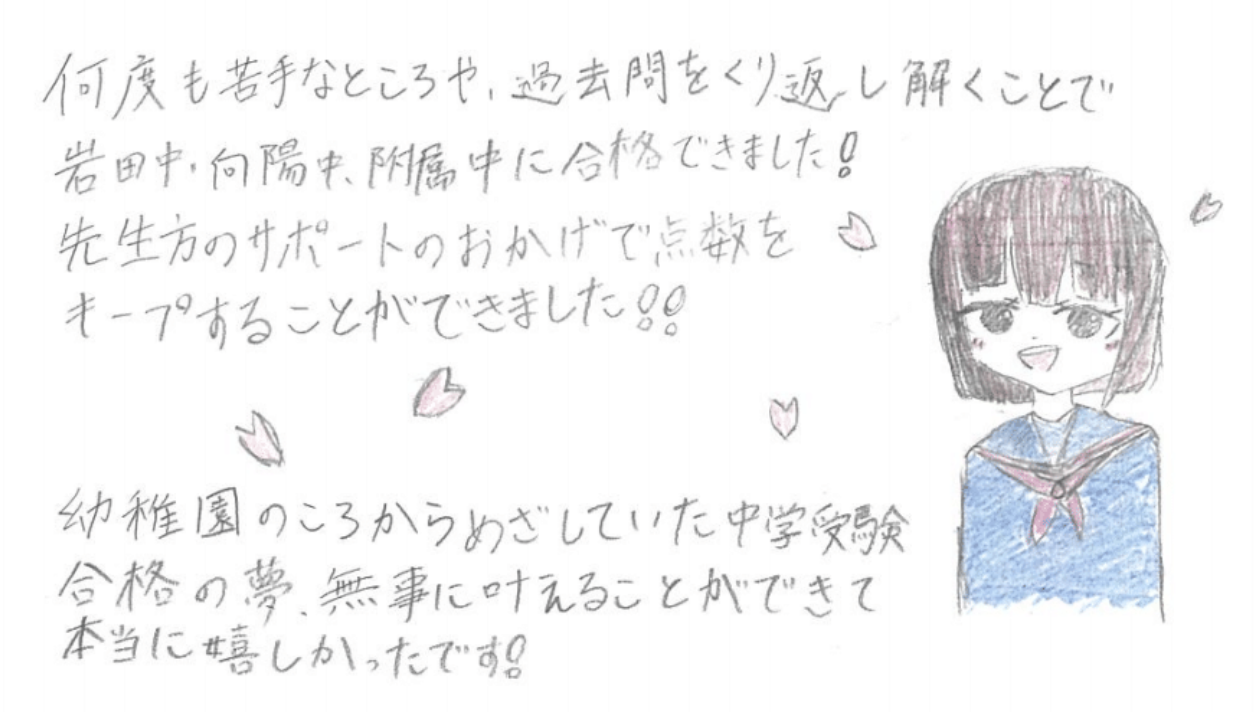 何度も苦手なところや、過去問をくり返し解くことで
岩田中、向陽中、附属中に合格できました!
先生方のサポートのおかげで点数を
キープすることができました!!
幼稚園のころからめざしていた中学受験
合格の夢、無事に叶えることができて
本当に嬉しかったです!